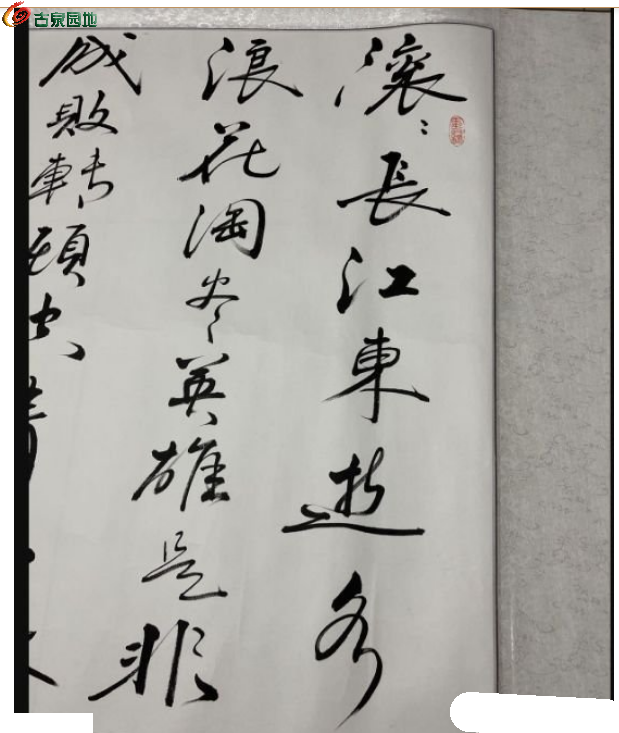 古泉园地
滚〻長江東逝水
浪花淘尽英雄是非
成敗轉頭空青